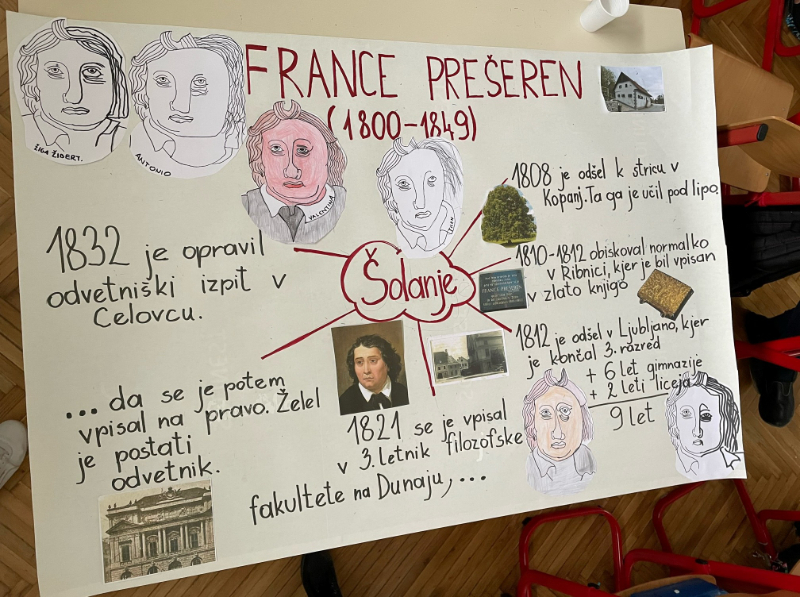 FRANCE PREŠEREN
(1800-1849)
ŽIGA ŽIBERT.
ANTONIO
VALENTINA
Šolanje
1808 je odšel k stricu v
Kopanj. Ta ga je učil pod lipo.
1810-1812 obiskoval normalko
v Ribnici, kjer je bil vpisan
v zlato knjigo
1812 je odšel v Ljubljano, kjer
je končal 3. razred
+ 6 let gimnazije
+ 2 leti liceja
9 let
1821 se je vpisal
v 3. letnik filozofske
fakultete na Dunaju, ...
... da se je potem
vpisal na pravo. Želel
je postati
odvetnik.
1832 je opravil
odvetniški izpit v
Celovcu.